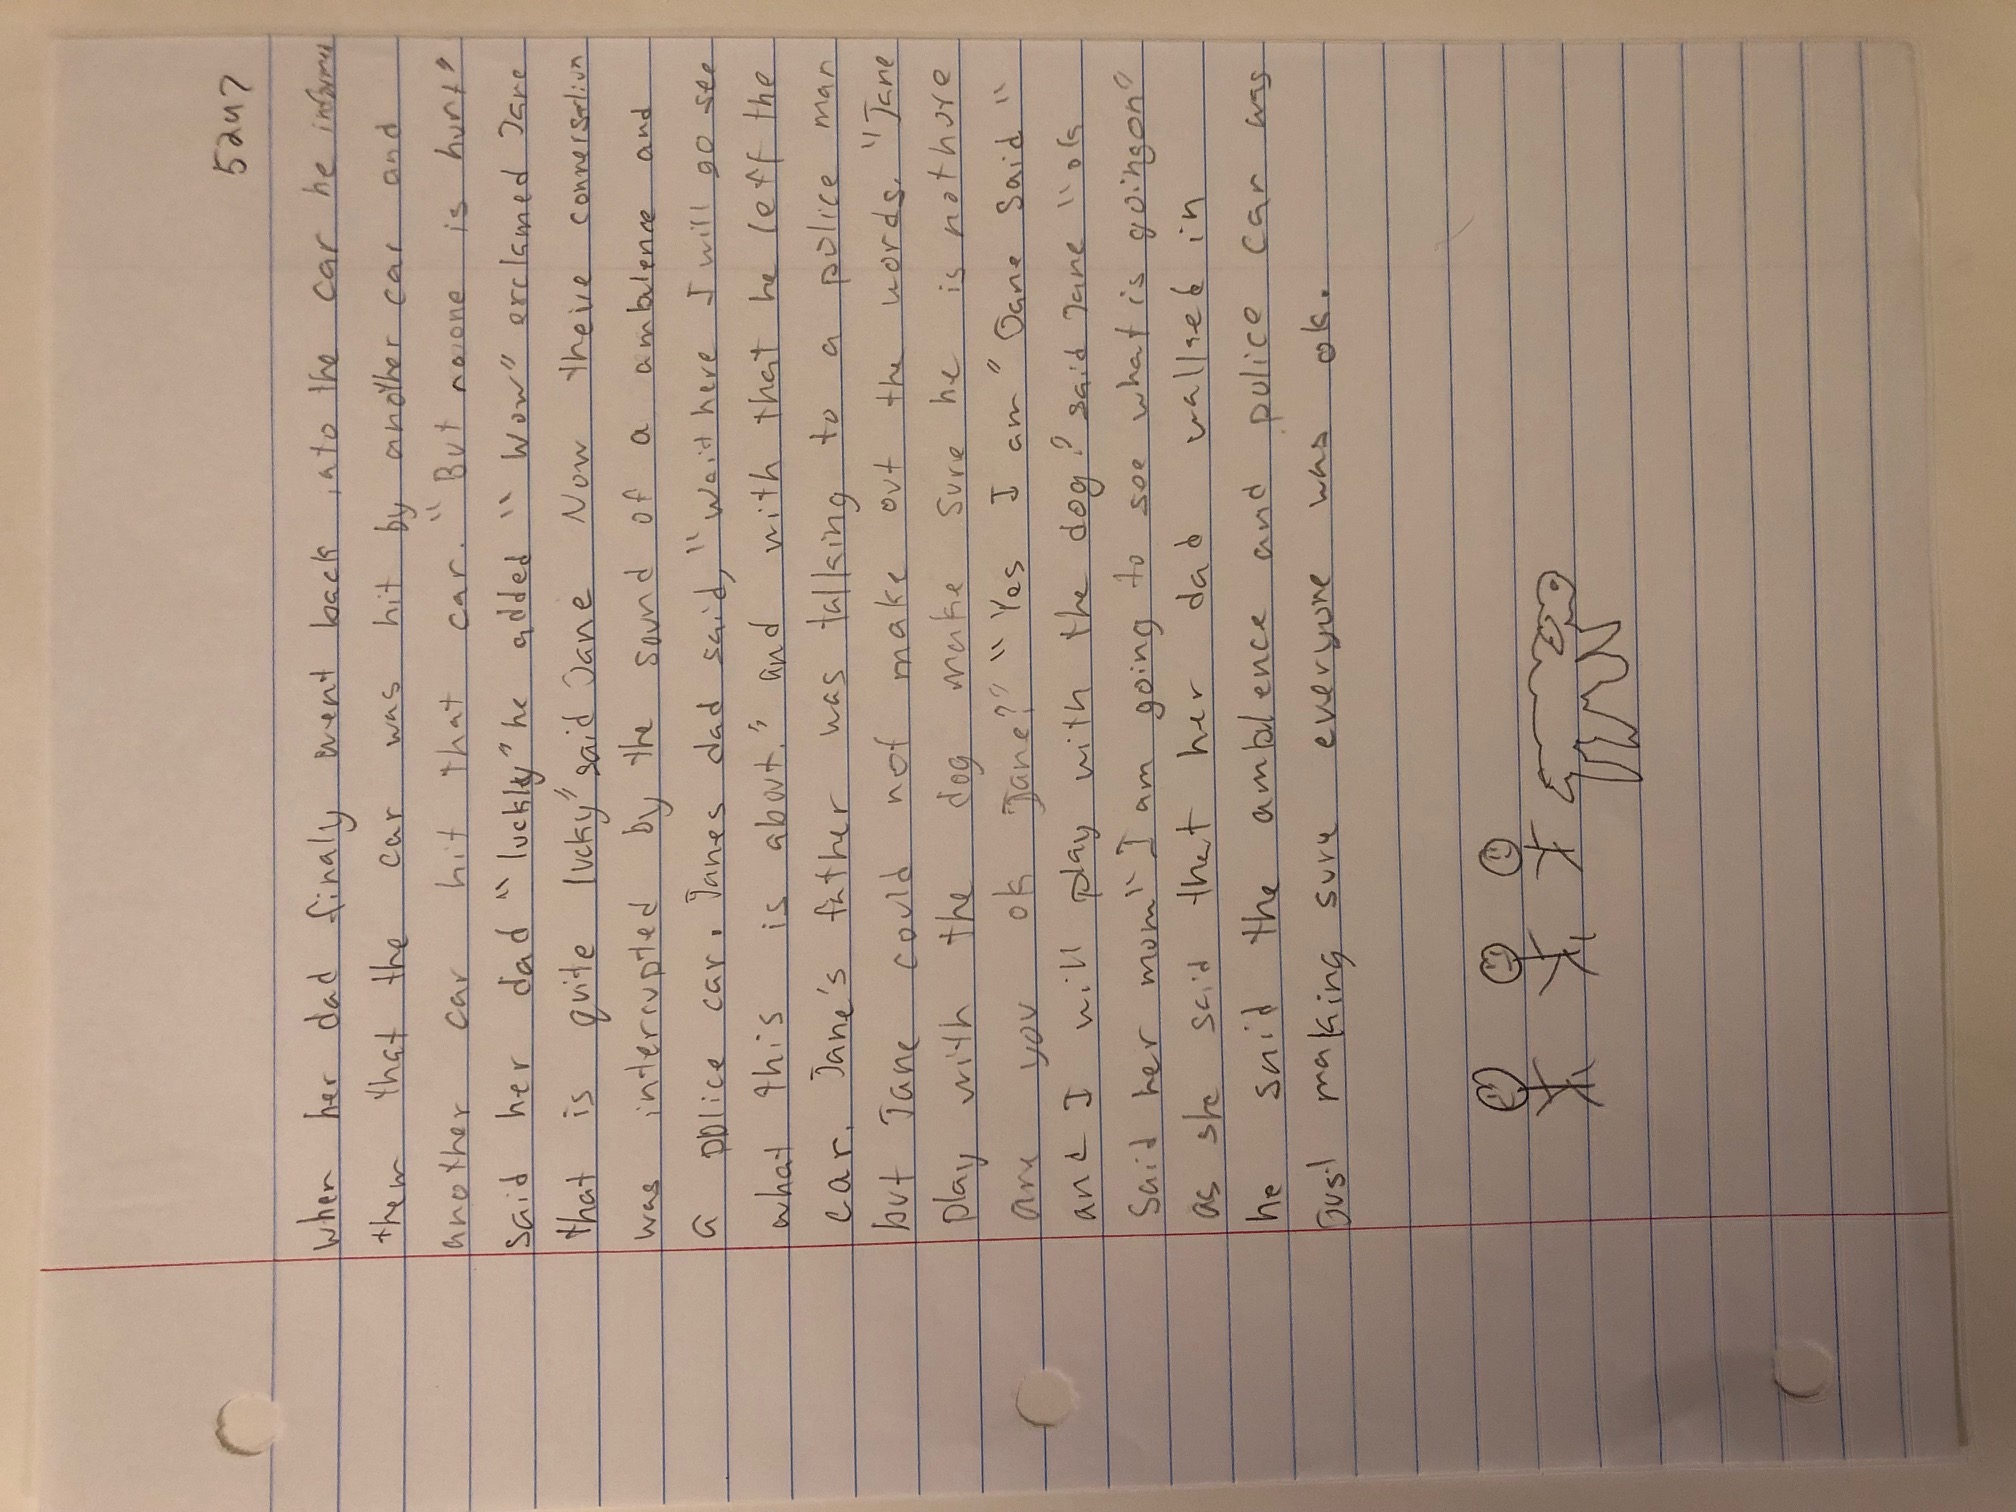 5247
When her dad finaly went back into the car he informed
them that the car was hit by another car and
another car hit that car. "But noone is hurt"
said her dad "luckly" he added "Wow" exclamed Jane
that is quite lucky" said Jane Now theire conversation
was interrupted by the sound of a ambulence and
a police car. Janes dad said, "Wait here I will go see
what this is about." and with that he left the
car. Jane's father was talking to a police man
but Jane could not make out the words. "Jane
play with the dog make sure he is not hure
are you ok Jane?" "Yes I am" Jane said "
and I will play with the dog" said Jane "ok
said her mom" I am going to see what is going on"
as she said that her dad walked in
he said the ambulence and police car was
Just making sure everyone was ok.